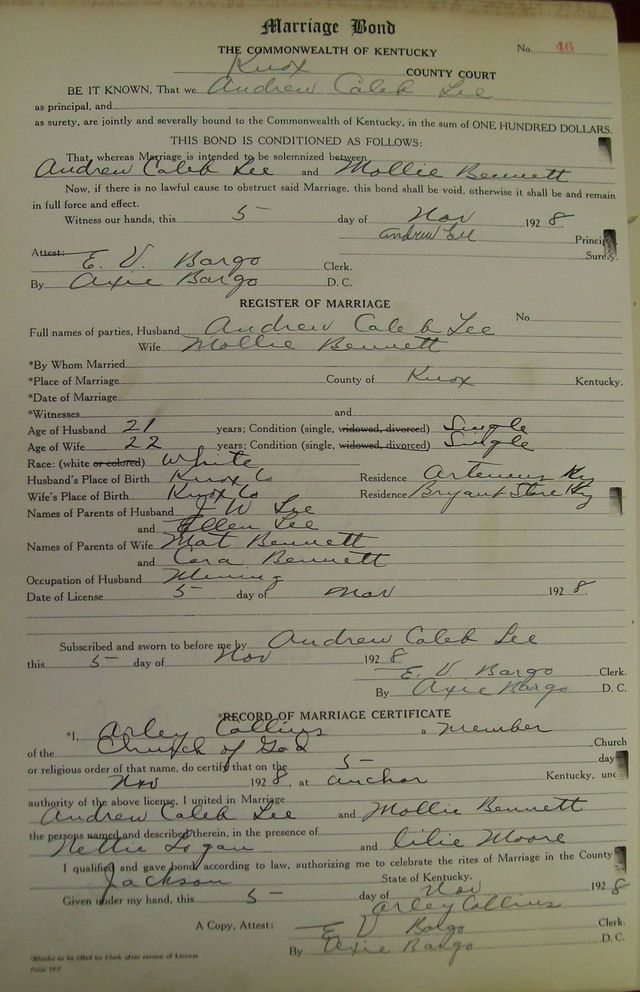 Marriage Bond
THE COMMONWEALTH OF KENTUCKY No. 46
Knox COUNTY COURT
BE IT KNOWN, That we Andrew Caleb Lee
as principal, and
as surety, are jointly and severally bound to the Commonwealth of Kentucky, in the sum of ONE HUNDRED DOLLARS.
THIS BOND IS CONDITIONED AS FOLLOWS:
That whereas Marriage is intended to be solemnized between
Andrew Caleb Lee and Mollie Bennett
Now, if there is no lawful cause to obstruct said Marriage, this bond shall be void, otherwise it shall be and remain
in full force and effect.
Witness our hands, this 5 day of Nov 1928.
Andrew Lee Princi
Attest: Sure
E. V. Bargo Clerk.
By Axie Bargo D. C.
REGISTER OF MARRIAGE
Full names of parties, Husband Andrew Caleb Lee No.
Wife Mollie Bennett
*By Whom Married
*Place of Marriage County of Knox Kentucky.
*Date of Marriage
*Witnesses and
Age of Husband 21 years; Condition (single, widowed, divorced) Single
Age of Wife 22 years; Condition (single, widowed, divorced) Single
Race: (white or colored) White
Husband's Place of Birth Knox Co Residence Artemus Ky
Wife's Place of Birth Knox Co Residence Bryant Store Ky
Names of Parents of Husband J W Lee
and Ellen Lee
Names of Parents of Wife Mat Bennett
and Cora Bennett
Occupation of Husband Mining
Date of License 5 day of Nov 1928.
Subscribed and sworn to before me by Andrew Caleb Lee
this 5 day of Nov 1928
E. V. Bargo Clerk.
By Axie Bargo D. C.
*RECORD OF MARRIAGE CERTIFICATE
*I, Arley Collins a member
of the Church of God Church
or religious order of that name, do certify that on the 5 day
Nov 1928, at anchor Kentucky, und
authority of the above license, I united in Marriage
Andrew Caleb Lee and Mollie Bennett
the persons named and described therein, in the presence of
Nettie Logan and Lilie Moore
I qualified and gave bond, according to law, authorizing me to celebrate the rites of Marriage in the County
Jackson State of Kentucky.
Given under my hand, this 5 day of Nov 1928
Arley Collins
A Copy, Attest: E. V. Bargo Clerk.
By Axie Bargo D. C.
*Blanks to be filled by Clerk after return of License
Form